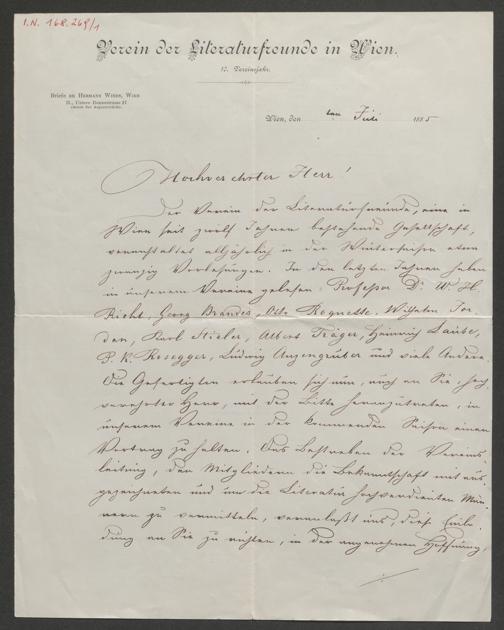 I.N. 168.269/1
Verein der Literaturfreunde in Wien.
12. Vereinsjahr.
Briefe an Hermann Wiede, Wien
II., Untere Donaustrasse 27
Wien, den ten Juli 1885
Hochverehrter Herr!
Der Verein der Literaturfreunde, eine in
Wien seit zwölf Jahren bestehende Gesellschaft,
veranstaltet alljährlich in der Wintersaison etwa
zwanzig Vorlesungen. In den letzten Jahren haben
in unserem Vereine gelesen: Professor Dr. W. H.
Riehl, Georg Brandes, Otto Roquette, Wilhelm Jor-
dan, Karl Stieler, Albert Träger, Heinrich Laube,
P. K. Rosegger, Ludwig Anzengruber und viele Andere.
Die Gefertigten erlauben sich nun, auch an Sie, hoch-
verehrter Herr, mit der Bitte heranzutreten, in
unserem Vereine in der kommenden Saison einen
Vortrag zu halten. Das Bestreben der Vereins-
leitung, den Mitgliedern die Bekanntschaft mit aus-
gezeichneten und um die Literatur hochverdienten Män-
nern zu vermitteln, veranlaßt uns, diese Einla-
dung an Sie zu richten, in der angenehmen Hoffnung,